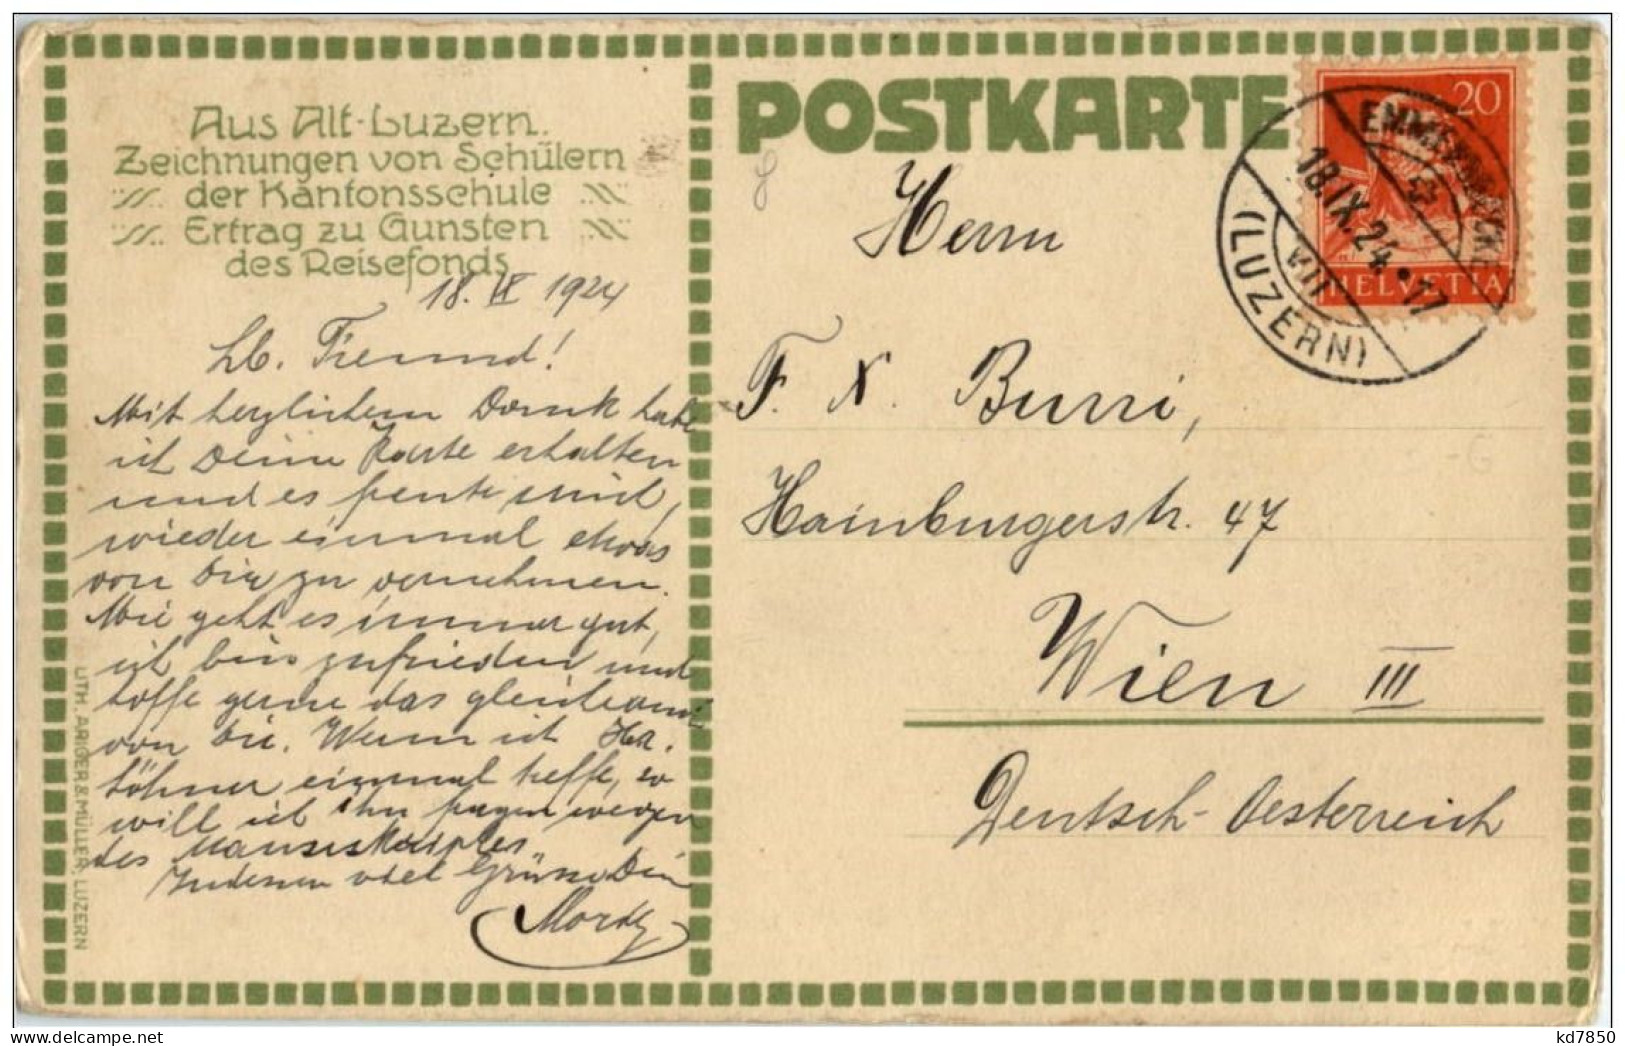 Aus Alt-Luzern.
Zeichnungen von Schülern
der Kantonsschule
Ertrag zu Gunsten
des Reisefonds
18. IX 1924
Lb. Freund!
Mit herzlichem Dank habe
ich Deine Karte erhalten
und es freute mich,
wieder einmal etwas
von Dir zu vernehmen.
Mir geht es immer gut,
ich bin zufrieden und
hoffe gerne das gleiche auch
von Dir. Wenn ich Hr.
einmal treffe, so
will ich ihn fragen wegen
des Manuskriptes
Indessen viel Grüsse Dein
LITH. ARIGER & MÜLLER, LUZERN
POSTKARTE
20
HELVETIA
EMMENBRÜCKE
18.IX.24.17
VIII
(LUZERN)
Herrn
F. X. Burri,
Hainburgerstr. 47
Wien III
Deutsch-Oesterreich
kd7850